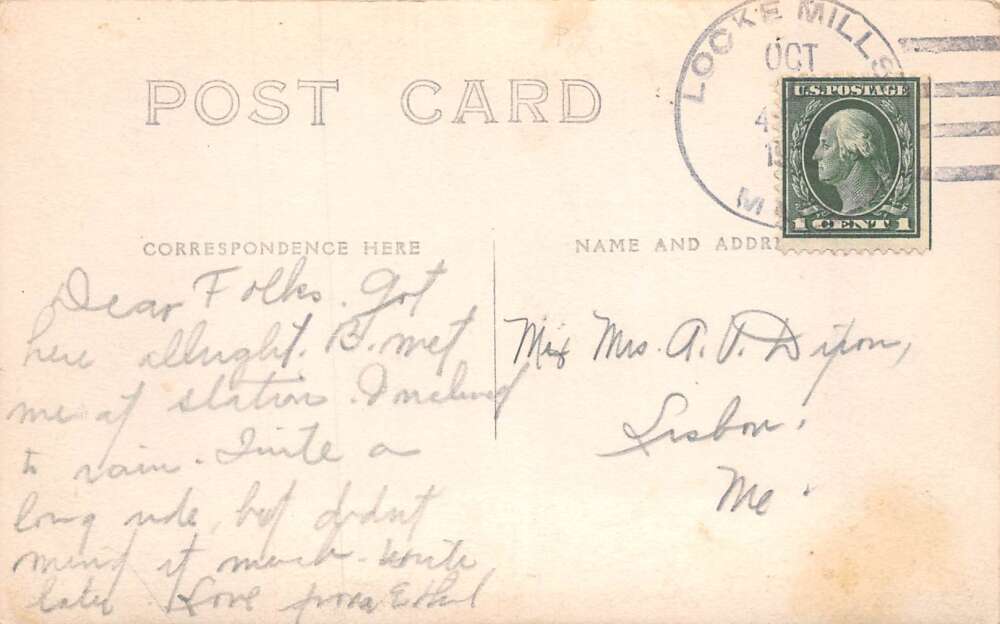 LOCKE MILLS
OCT
4
1
M
U.S. POSTAGE
1 CENT 1
POST CARD
CORRESPONDENCE HERE
NAME AND ADDRE
Dear Folks. Got
here allright. B. met
me at station. Inclined
to rain. Quite a
long ride, but didn't
mind it much. Write
later Love from Ethel
Mrs. A. P.
Lisbon.
Me.